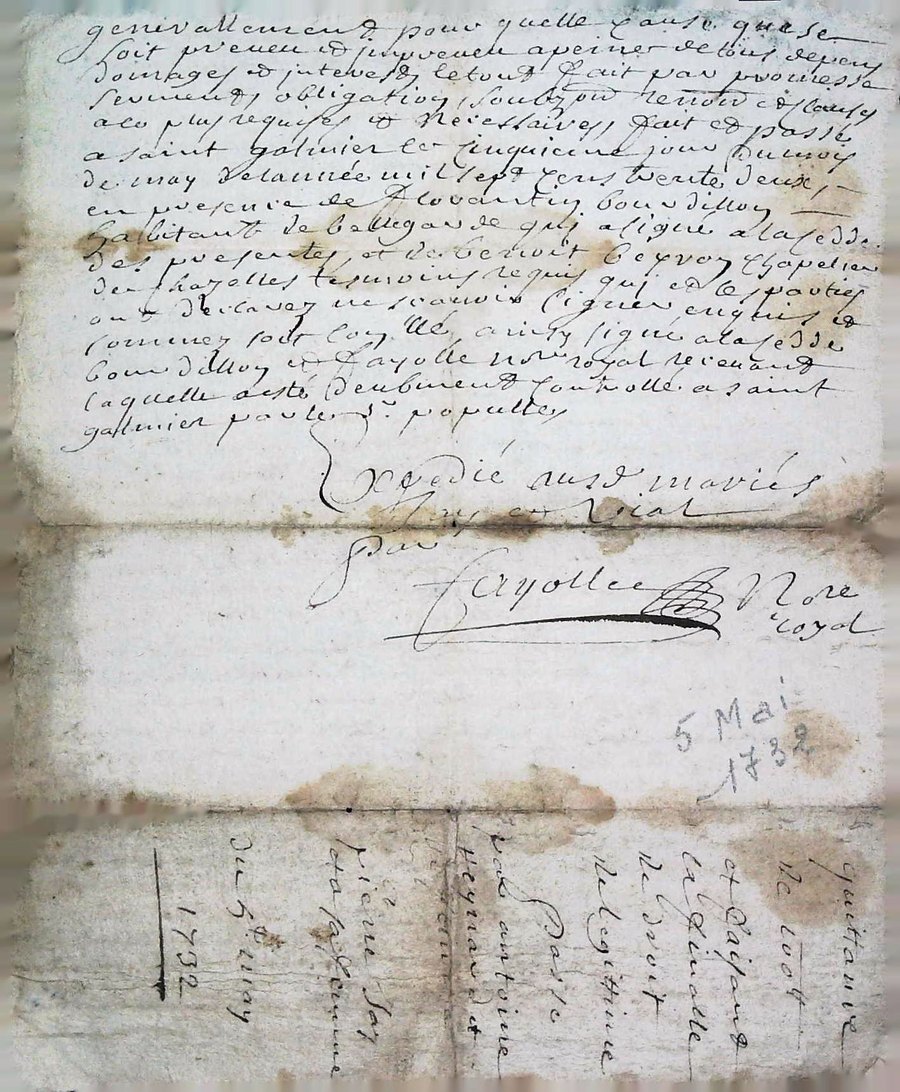 generallement pour quelle cause que se
soit preveu et jmpreveu apeine de tous depens
domages et interests le tout fait par promesse
serments, obligation, soubzon renon et clauses
a ce plus requises et necessaires, fait et passé
a saint galmier le cinquieme jour du moy
de may de lannée mil sept cens trente deux,
en presence de florantin bourdillon
habitant de bellegarde qui a signé a la sedde
des presentes, et de benoit beyron chapelier
de chazelles tesmoins requis qui et les parties
ont declarez ne scavoir signer enquis et
sommez soit controllé ainsy signé a la sedde
bourdillon et fayolle nore royal recevant
laquelle a esté deubment controllé a saint
galmier par le sr. populle,
Expedié ausd mariés
par
fayolle Nore
royal
5 Mai
1732
quittance
de 100#
et faisant
la finalle
de droit
de legittime
Passé
par antoine
reynard et
pierre Jay
et sa femme
du 5e may
1732